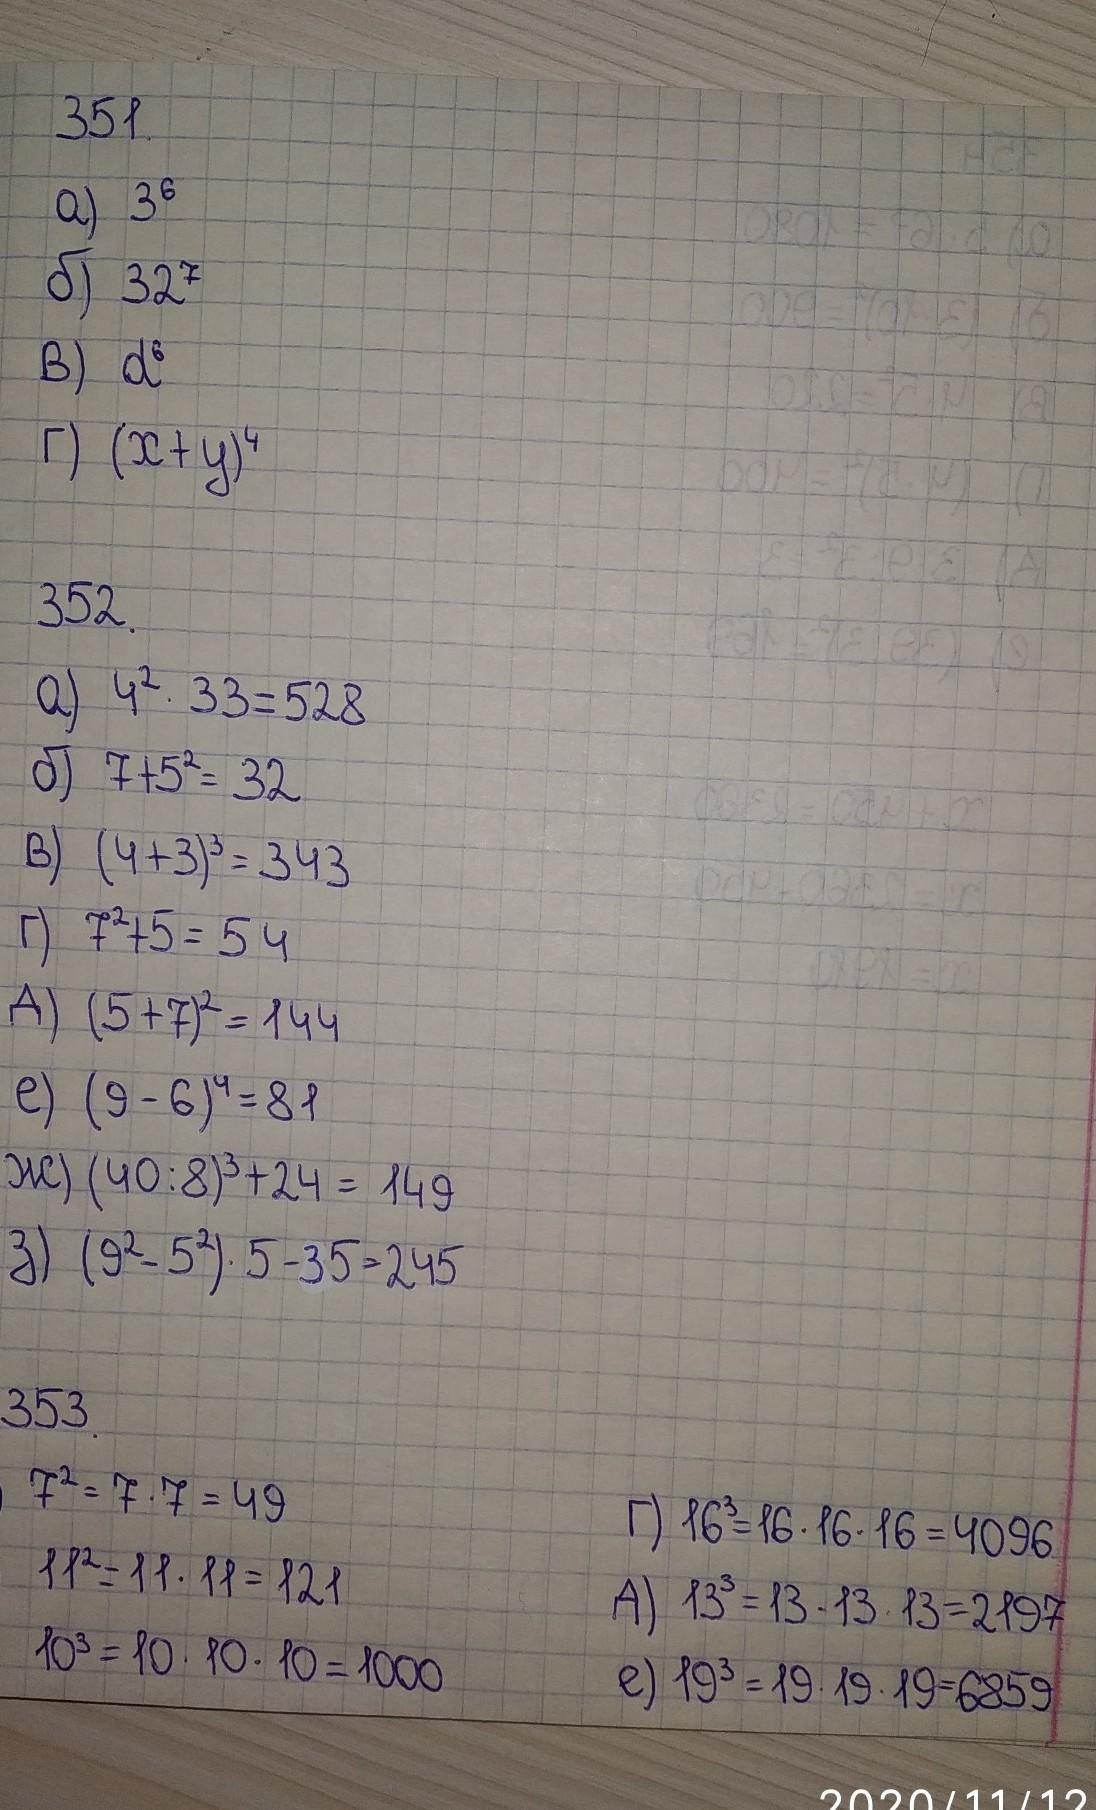 351.
а) 3⁶
б) 32⁷
в) d⁶
г) (x+y)⁴
352.
а) 4² · 33 = 528
б) 7+5² = 32
в) (4+3)³ = 343
г) 7²+5 = 54
д) (5+7)² = 144
е) (9-6)⁴ = 81
ж) (40:8)³+24 = 149
з) (9²-5²) · 5-35 = 245
353.
7² = 7 · 7 = 49
11² = 11 · 11 = 121
10³ = 10 · 10 · 10 = 1000
г) 16³ = 16 · 16 · 16 = 4096
д) 13³ = 13 · 13 · 13 = 2197
е) 19³ = 19 · 19 · 19 = 6859
2020/11/12